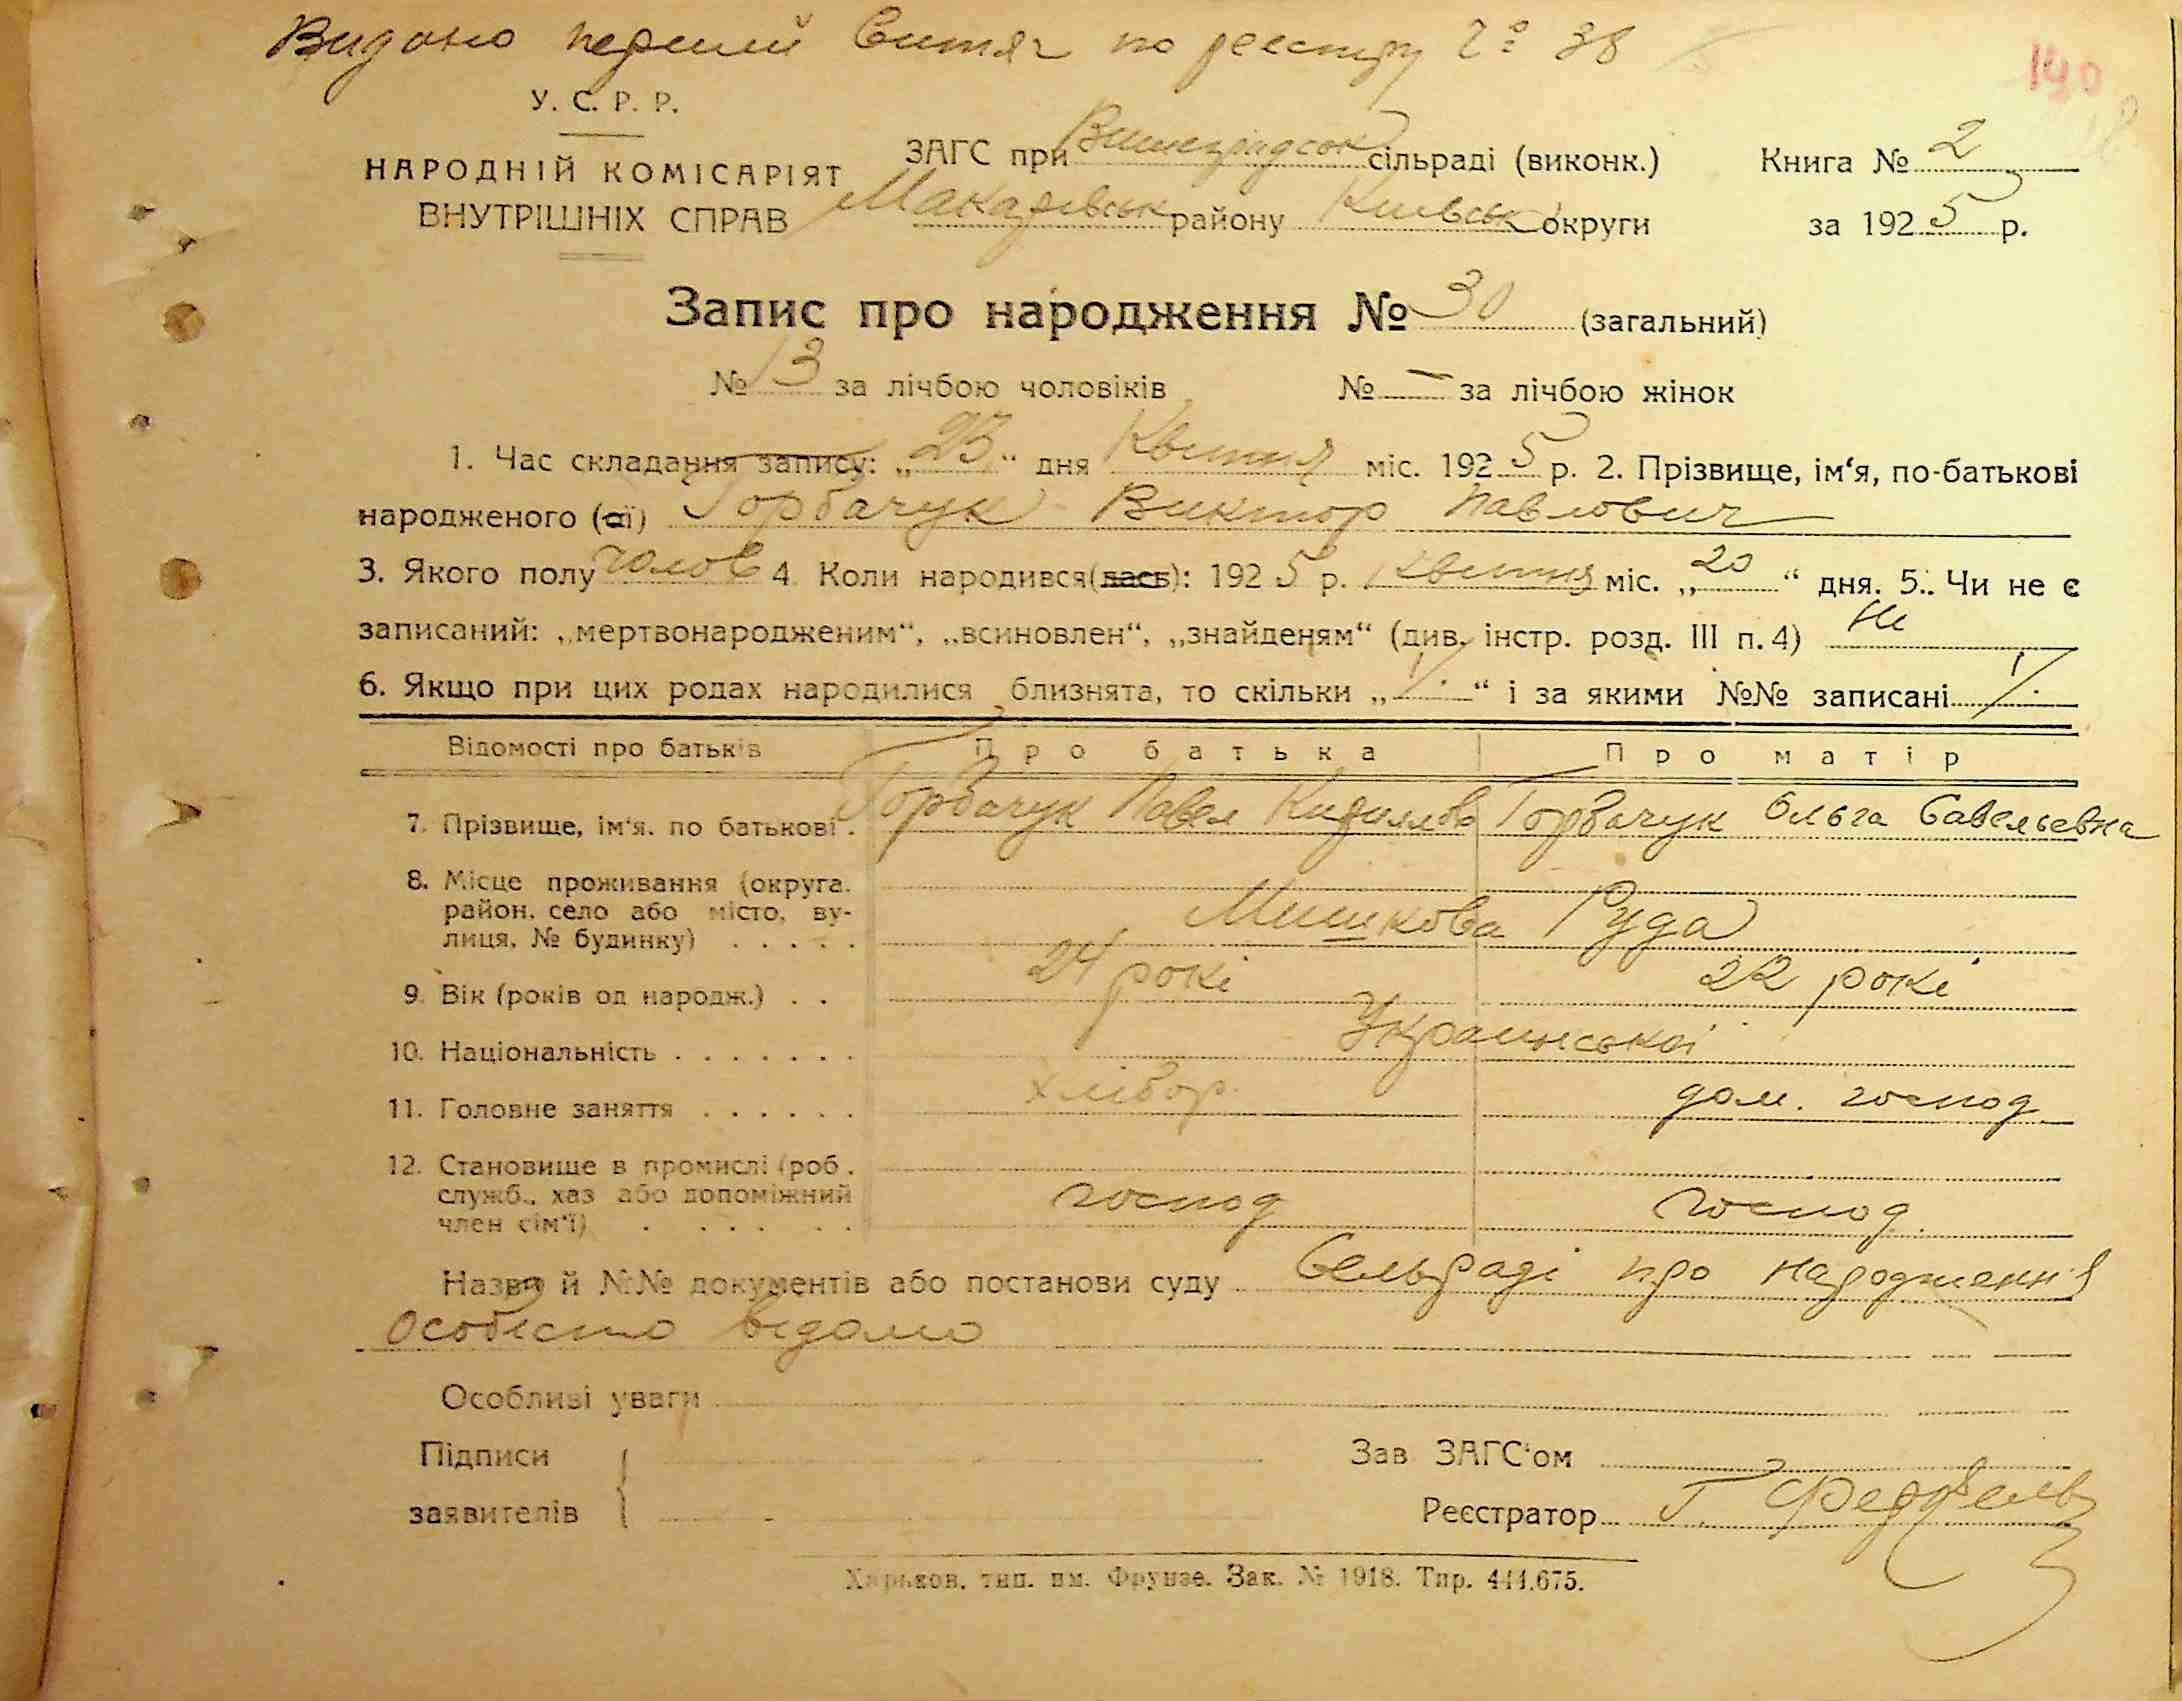 Видано перший Витяг по реестру № 38
140
У. С. Р. Р.
НАРОДНІЙ КОМІСАРІЯТ
ВНУТРІШНІХ СПРАВ
ЗАГС при Вишеградськ сільраді (виконк.) Книга № 2
Макарівськ району Київськ округи за 1925 р.
Запис про народження № 30 (загальний)
№ 13 за лічбою чоловіків № — за лічбою жінок
1. Час складання запису: „23“ дня Квітня міс. 1925 р. 2. Прізвище, ім‘я, по-батькові
народженого (ої) Горбачук Виктор Павлович
3. Якого полу чолов 4. Коли народився(лась): 1925 р. Квітня міс. „20“ дня. 5. Чи не є
записаний: „мертвонародженим“, „всиновлен“, „знайденям“ (див. інстр. розд. III п. 4) Не
6. Якщо при цих родах народилися близнята, то скільки „ ./. “ і за якими №№ записані ./.
Відомості про батьків Про батька Про матір
7. Прізвище, ім‘я. по батькові . Горбачук Павел Кирилов Горбачук Ольга Савельевна
8. Місце проживання (округа.
район, село або місто, ву-
лиця, № будинку) . . . . . Мишкова Руда
9. Вік (років од народж.) . . 24 рокі 22 рокі
10. Національність . . . . . . . Украинської
11. Головне заняття . . . . . . хлібор. дом. господ
12. Становище в промислі (роб.
служб., хаз або допоміжний
член сім‘ї) . . . . . . господ господ.
Назва й №№ документів або постанови суду Сельраді про народження
Особісто відомо
Особливі уваги
Підписи
заявителів
Зав ЗАГС‘ом
Реєстратор Г.
Харьков, тип. им. Фрунзе. Зак. № 1918. Тир. 444.675.